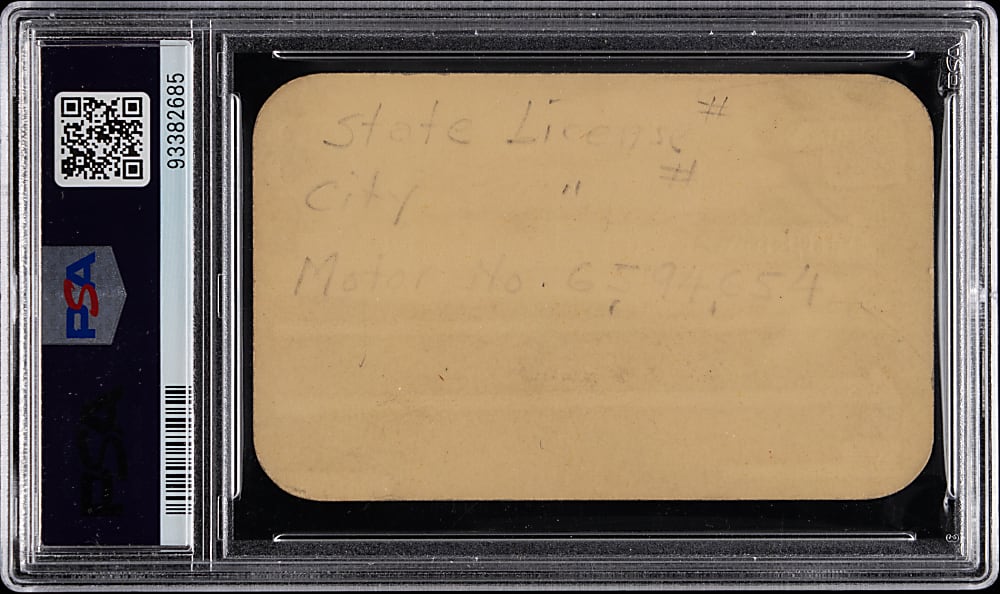 93382685
PSA
State License #
City " #
Motor No. 6,594,654